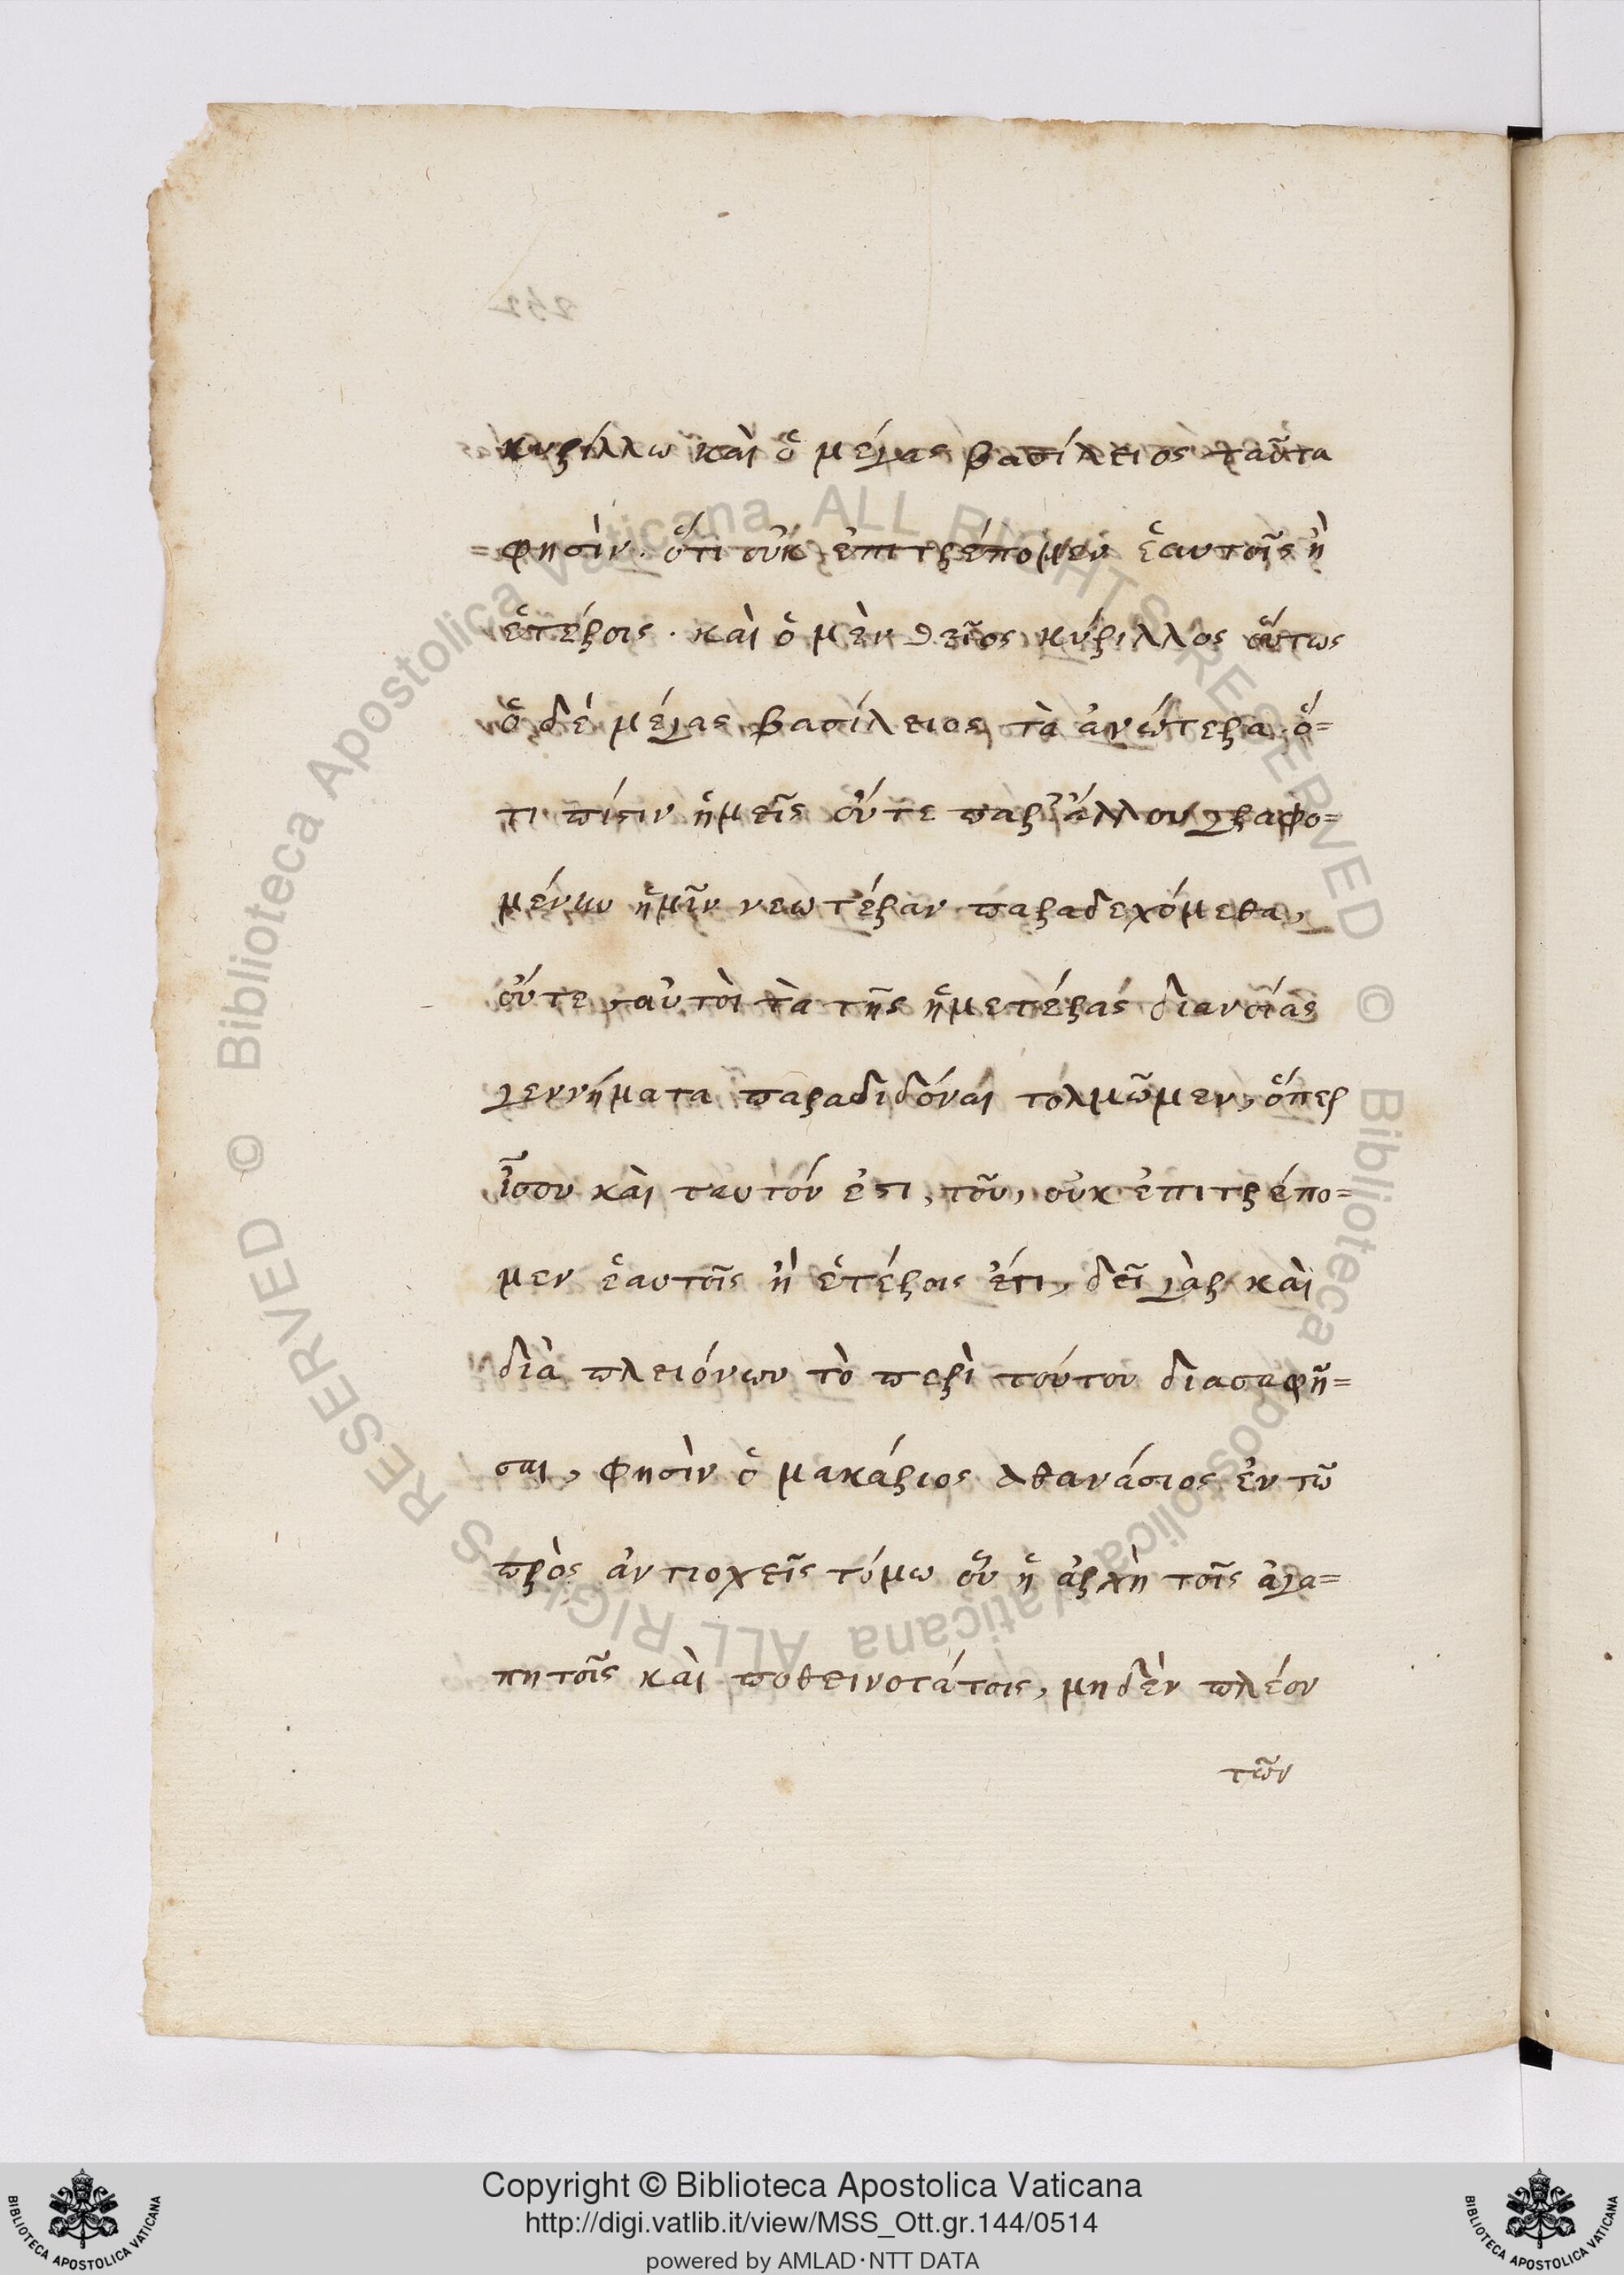 κυρίλλω καὶ ὁ μέγας βασίλειος ταῦτα
=φησὶν. ὅτι οὐκ ἐπιτρέπομεν ἑαυτοῖς ἢ
ἑτέροις. καὶ ὁ μὲν θεῖος κύριλλος οὕτως
ὁ δὲ μέγας βασίλειος τὰ ἀνώτερα ὅ=
τι πίστιν ἡμεῖς οὔτε παρ' ἄλλων γραφο=
μένην ἡμῖν νεωτέραν παραδεχόμεθα,
οὔτε αὐτοὶ τὰ τῆς ἡμετέρας διανοίας
γεννήματα παραδιδόναι τολμῶμεν, ὅπερ
ἶσον καὶ ταυτόν ἐστι, τοῦ, οὐκ ἐπιτρέπο=
μεν ἑαυτοῖς ἢ ἑτέροις ἔτι, δεῖ γὰρ καὶ
διὰ πλειόνων τὸ περὶ τούτου διασαφῆ=
σαι, φησὶν ὁ μακάριος Αθανάσιος ἐν τῶ
πρὸς ἀντιοχεῖς τόμω οὗ ἡ ἀρχὴ τοῖς ἀγα=
πητοῖς καὶ ποθεινοτάτοις, μηδὲν πλέον
τῶν
Copyright © Biblioteca Apostolica Vaticana
http://digi.vatlib.it/view/MSS_Ott.gr.144/0514
powered by AMLAD·NTT DATA
© Biblioteca Apostolica Vaticana ALL RIGHTS RESERVED
© Biblioteca Apostolica Vaticana ALL RIGHTS RESERVED
BIBLIOTECA APOSTOLICA VATICANA
BIBLIOTECA APOSTOLICA VATICANA